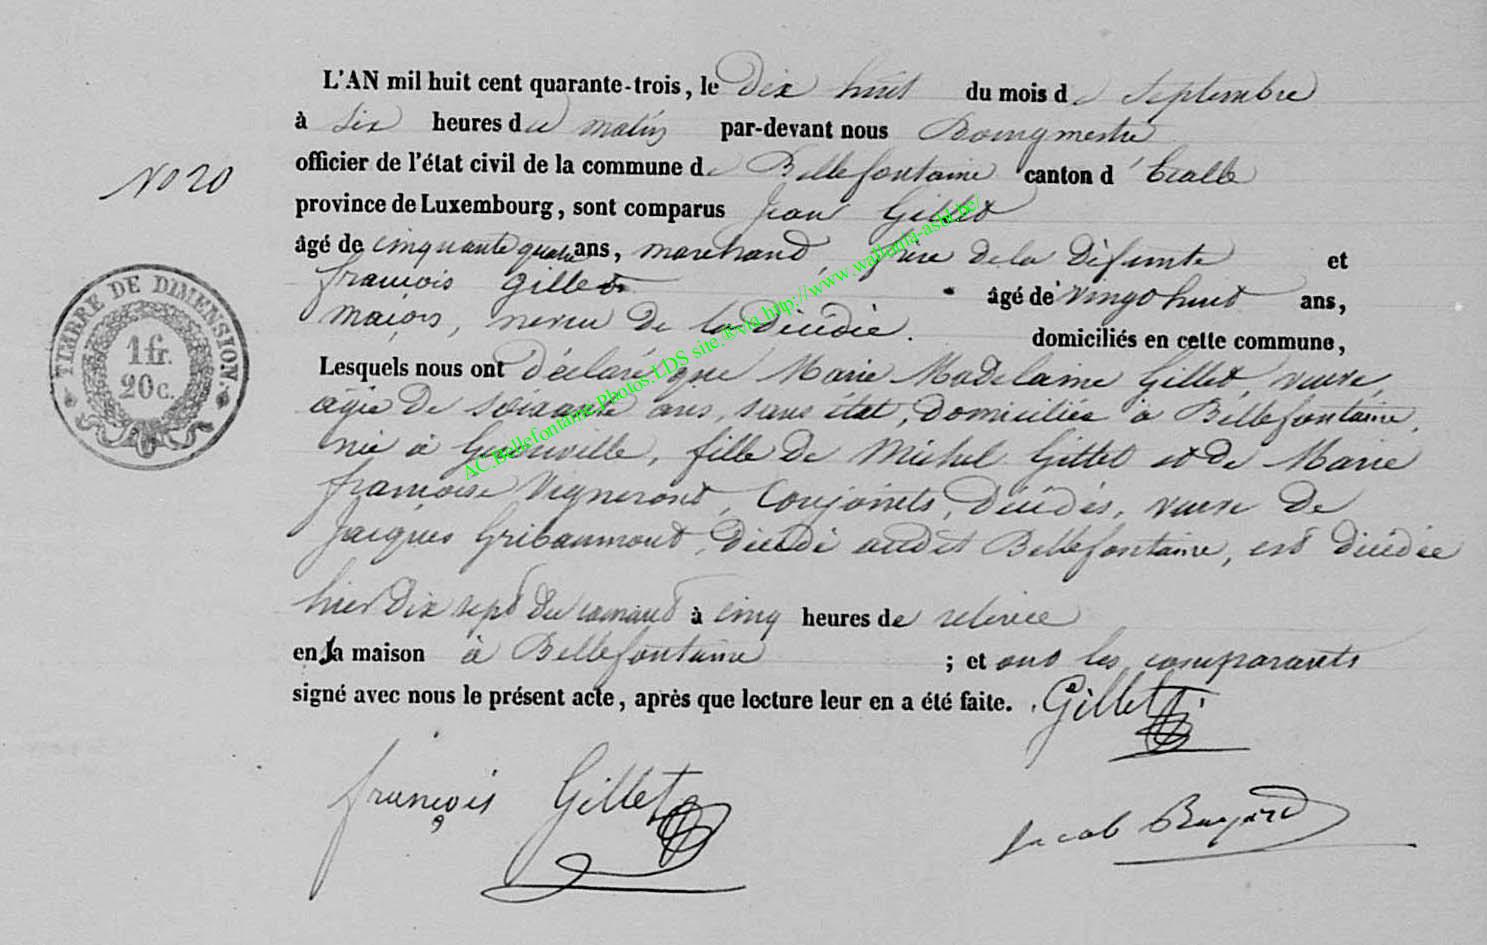 L'AN mil huit cent quarante-trois, le Dix huit du mois de Septembre
à Six heures du matin par-devant nous Bourgmestre
No 20
officier de l'état civil de la commune de Bellefontaine canton d'Etalle
province de Luxembourg, sont comparus Jean Gillet
âgé de cinquante quatre ans, marchand, frère de la défunte et
françois Gillet âgé de vingt huit ans,
maçon, neveu de la décédée. domiciliés en cette commune,
Lesquels nous ont déclaré que Marie Madelaine Gillet veuve
âgée de soixante ans, sans état, domiciliée à Bellefontaine,
née à fille de Michel Gillet et de Marie
françoise Vigneront, Conjoints, décédés, veuve de
Jacques Gribaumont, décédé audit Bellefontaine, est décédée
hier dix sept du courant à cinq heures de relevée
en sa maison à Bellefontaine ; et ont les comparants
signé avec nous le présent acte, après que lecture leur en a été faite. Gillet
françois Gillet
Jacob
TIMBRE DE DIMENSION.
1 fr.
20 c.
AC.Bellefontaine.Photos.LDS site.®via http://www.wallonia-asbl.be/